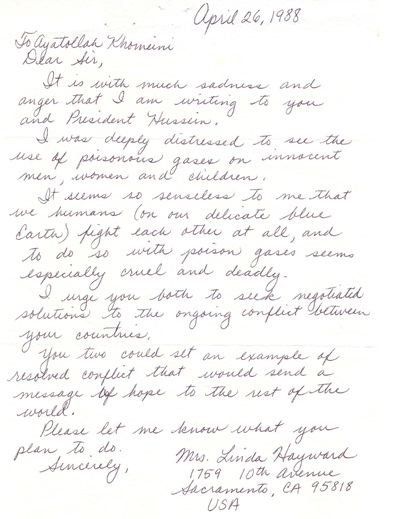 April 26, 1988
To Ayatollah Khomeini
Dear Sir,
It is with much sadness and
anger that I am writing to you
and President Hussein.
I was deeply distressed to see the
use of poisonous gases on innocent
men, women and children.
It seems so senseless to me that
we humans (on our delicate blue
Earth) fight each other at all, and
to do so with poison gases seems
especially cruel and deadly.
I urge you both to seek negotiated
solutions to the ongoing conflict between
your countries.
You two could set an example of
resolved conflict that would send a
message of hope to the rest of the
world.
Please let me know what you
plan to do.
Sincerely,
Mrs. Linda Hayward
1759 10th Avenue
Sacramento, CA 95818
USA